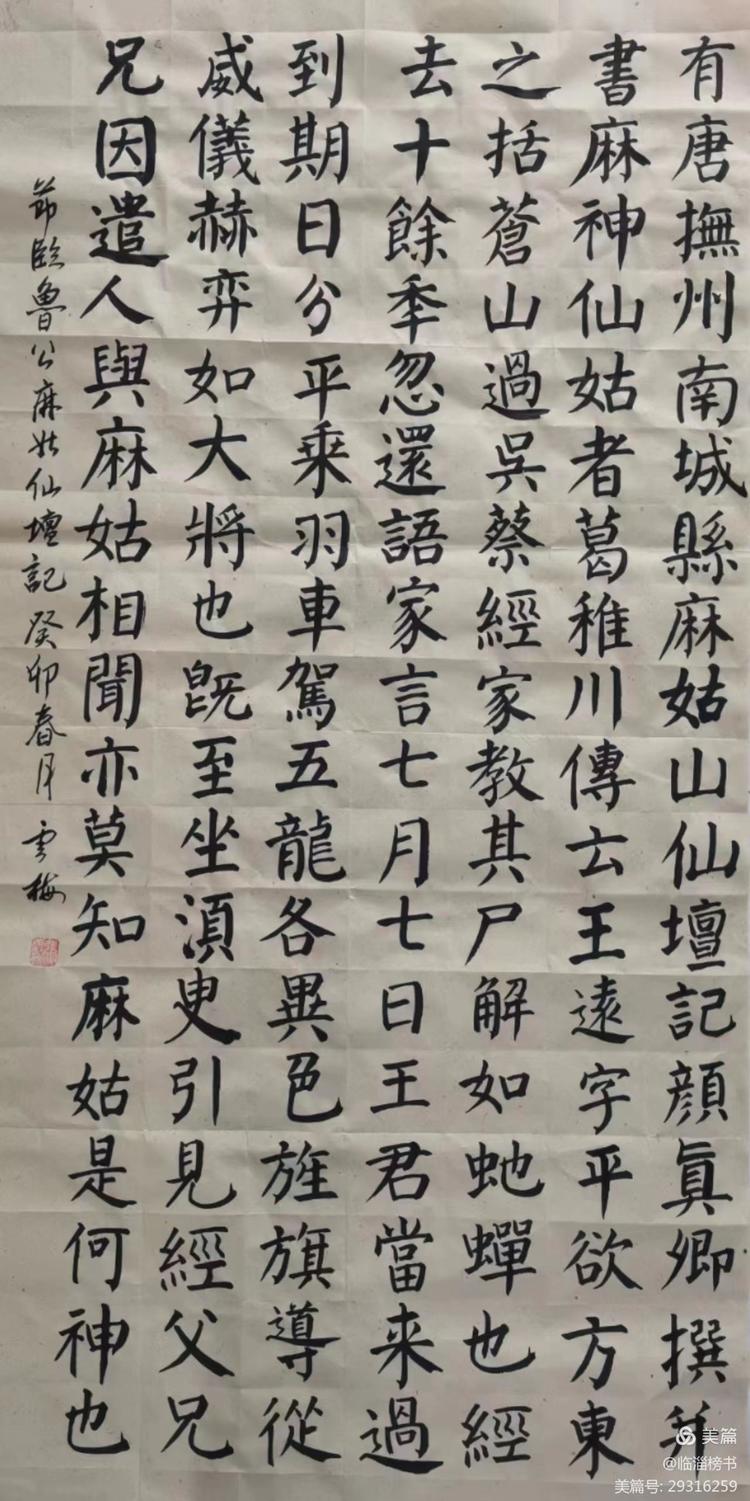 有唐撫州南城縣麻姑山仙壇記顔眞卿撰并
書麻神仙姑者葛稚川傳云王遠字平欲方東
之括蒼山過吳蔡經家教其尸解如虵蟬也經
去十餘秊忽還語家言七月七日王君當来過
到期日分平乗羽車駕五龍各異色旌旗導從
威儀赫弈如大將也旣至坐湏叟引見經父兄
兄因遣人與麻姑相聞亦莫知麻姑是何神也
節臨魯公麻姑仙壇記癸卯春月 雲梅
美篇
@临淄榜书
美篇号: 29316259